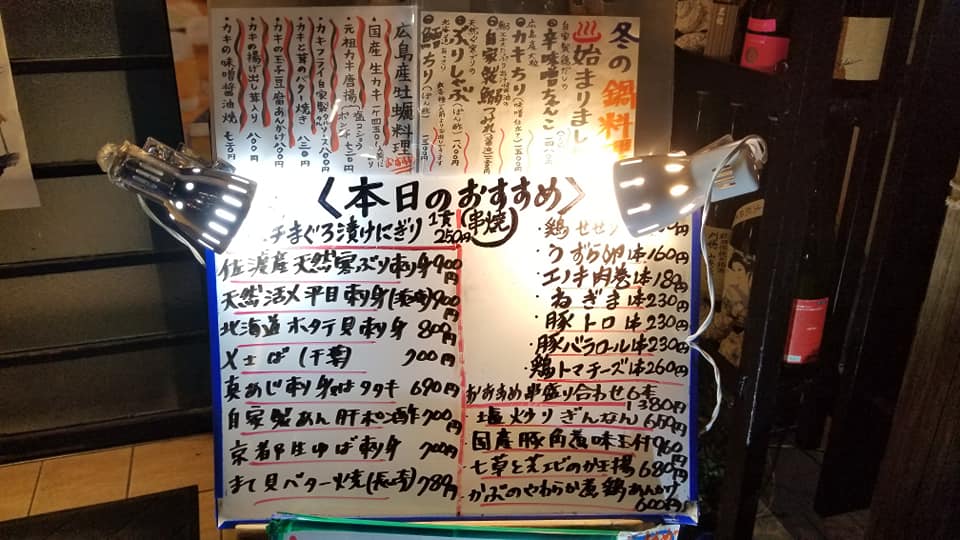 冬の鍋料理
始まりました
自家製鶏だしの
辛味噌ちゃんこ
広島産
カキちり
自家製鰯つみれ
ぶりしゃぶ
(ぽん酢)
鱈ちり
(ぽん酢)
広島産牡蠣料理
・国産生カキ
・元祖カキ唐揚
・カキフライ自家製タルタルソース 八〇〇
・カキと茸のバター焼き 八三〇
・カキの玉子豆腐あんかけ 八〇〇
・カキの揚げ出し茸入り 八〇〇
・カキの味噌醤油焼 七六〇円
〈本日のおすすめ〉
まぐろ漬けにぎり 1貫250円
佐渡産天然寒ぶり刺身 900円
天然活〆平目刺身(長崎) 900円
北海道ホタテ貝刺身 800円
〆さば(千葉) 700円
真あじ刺身又はタタキ 690円
自家製あん肝ポン酢 700円
京都生ゆば刺身 700円
まて貝バター焼(長崎) 789円
(串焼)
・鶏せせり
・うずら卵1本160円
・エノキ肉巻1本180
・ねぎま1本230円
・豚トロ1本230円
・豚バラロール1本230円
・鶏トマチーズ1本260円
おすすめ串盛り合わせ6本
1380円
・塩炒りぎんなん 660円
・国産豚角煮味玉付 960円
・七草と芝エビのかき揚 680円
・かぶのやわらか煮鶏あんかけ
600円